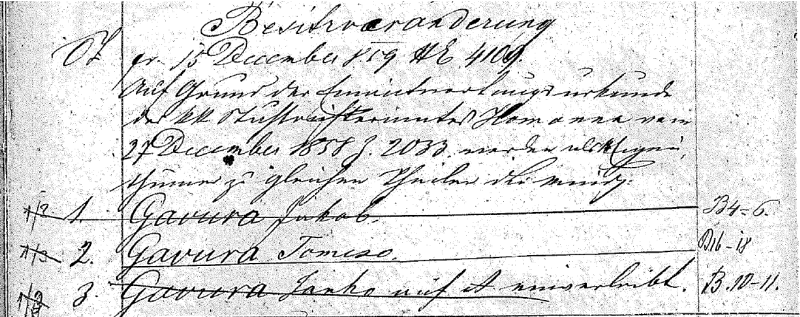 Besitzveränderung
pr. 15 December 859 HE 4109.
Auf Grund der Einantwortungsurkunde
des kk Stuhlrichteramtes Homonna vom
27 December 1858 Z. 2033. werden als Eigen
thümer zu gleichen Theilen die minj.
1/3 1. Gavura Jakob. B 4-6.
1/3 2. Gavura Tomeso. B 16-18
1/3 3. Gavura Janko auf A einverleibt. B. 10-11.